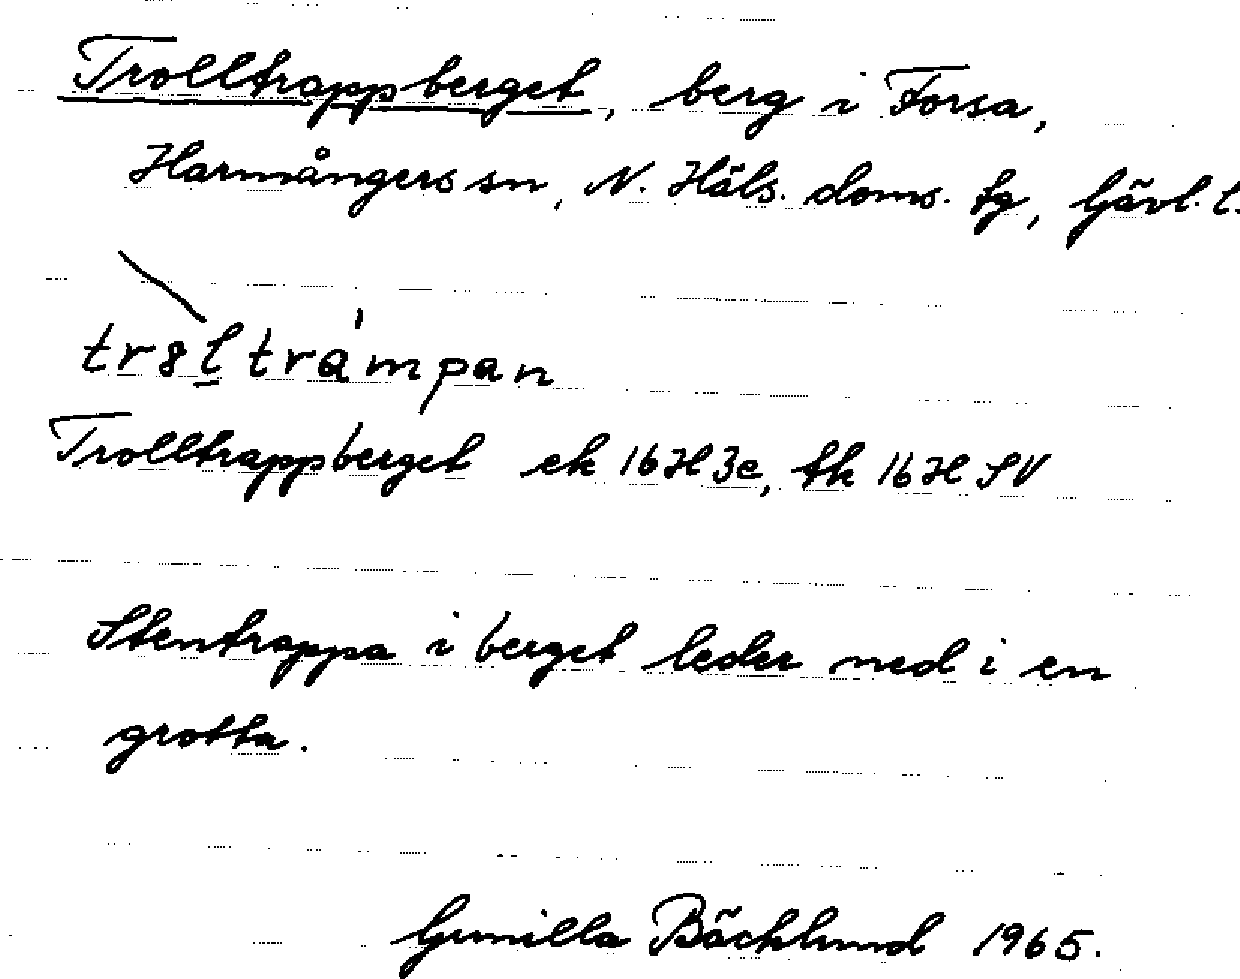 Trolltrappberget, berg i Forsa,
Harmångers sn, N. Häls. doms. tg, Gävl. l.
tr8l tràmpan
Trolltrappberget ek 16H3c, tk 16H SV
Stentrappa i berget leder ned i en
grotta.
Gunilla Bäcklund 1965.